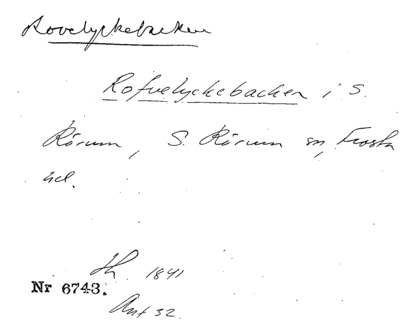 Rovelyckebacken
Rofvelyckebacken i S.
Rörum, S. Rörum sn, Frosta
hd.
1841
Nr 6743.
Ant 32.